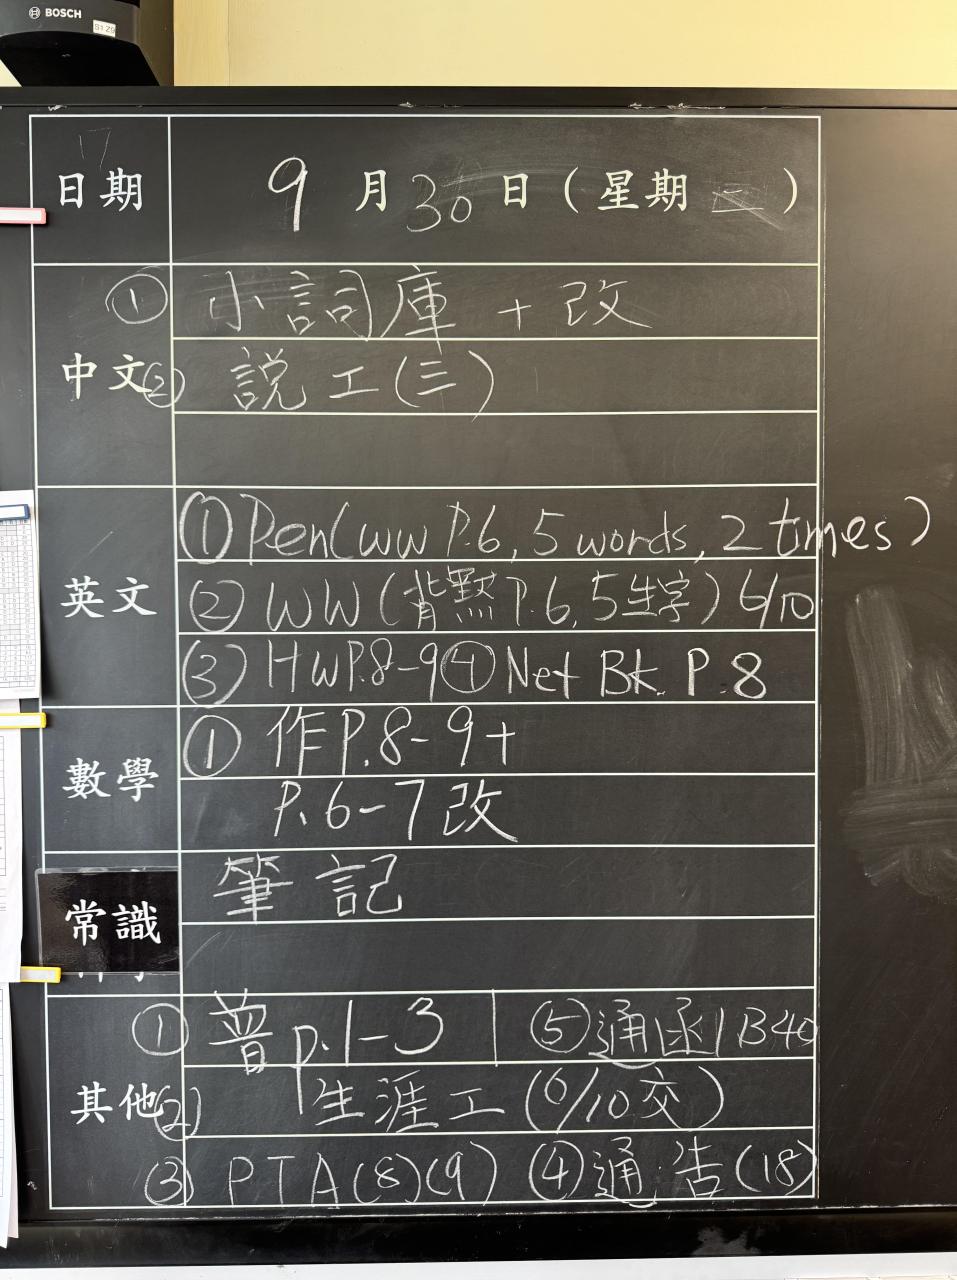 BOSCH
日期 9月30日(星期二)
中文 ① 小詞庫 + 改
② 説工(三)
英文 ① Pen(WW P.6, 5 words, 2 times)
② WW(背默 P.6, 5生字) 6/10
③ HW P.8-9 ④ Net Bk. P.8
數學 ① 作 P.8-9 +
P.6-7 改
常識 筆記
其他 ① 普 p.1-3 ⑤ 通函 1B40
② 生涯工(6/10交)
③ PTA(8)(9) ④ 通告(18)